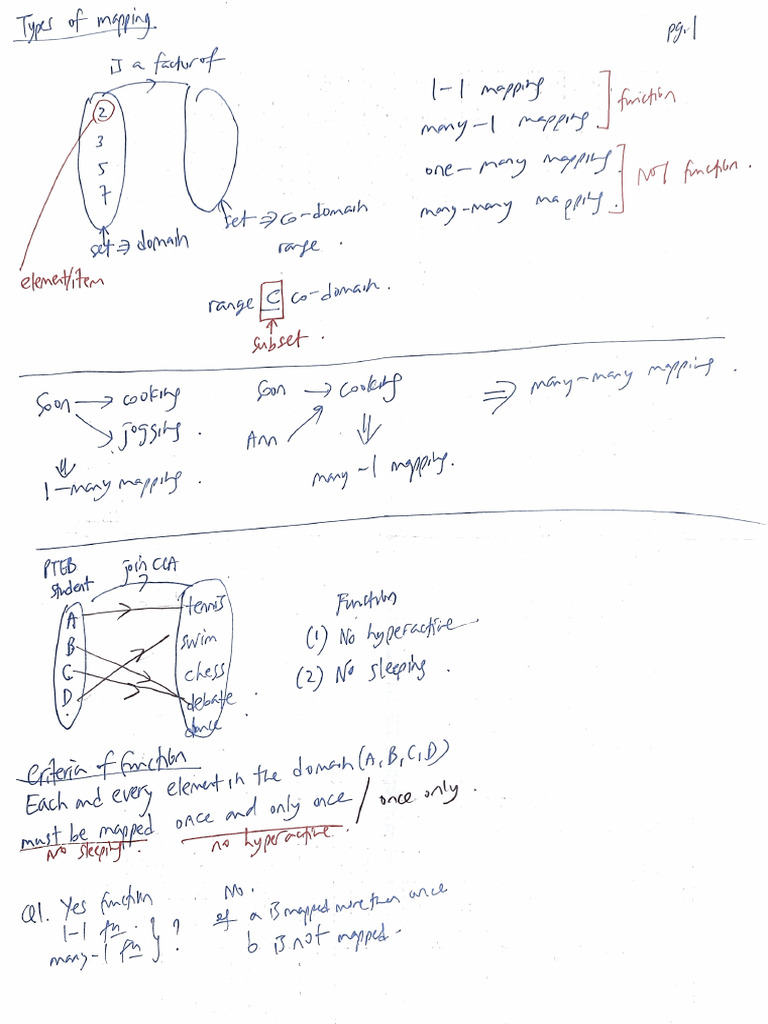 Types of mapping
pg.1
is a factor of
2
3
5
7
set ⇒ domain
set ⇒ co-domain
range.
element/item
1-1 mapping
many-1 mapping
function
one-many mapping
many-many mapping
NOT function.
range ⊆ co-domain.
subset.
Soon → cooking
jogging.
1-many mapping.
Soon → cooking
Ann
many-1 mapping.
⇒ many-many mapping.
PTEB
student
join CCA
A
B
C
D
tennis
swim
chess
debate
dance
Function
(1) No hyperactive
(2) No sleeping.
Criteria of function
Each and every element in the domain (A, B, C, D)
must be mapped once and only once / once only.
no sleeping.
no hyperactive.
Q1. Yes function
1-1 fn.
many-1 fn
?
No.
a is mapped more than once
b is not mapped.